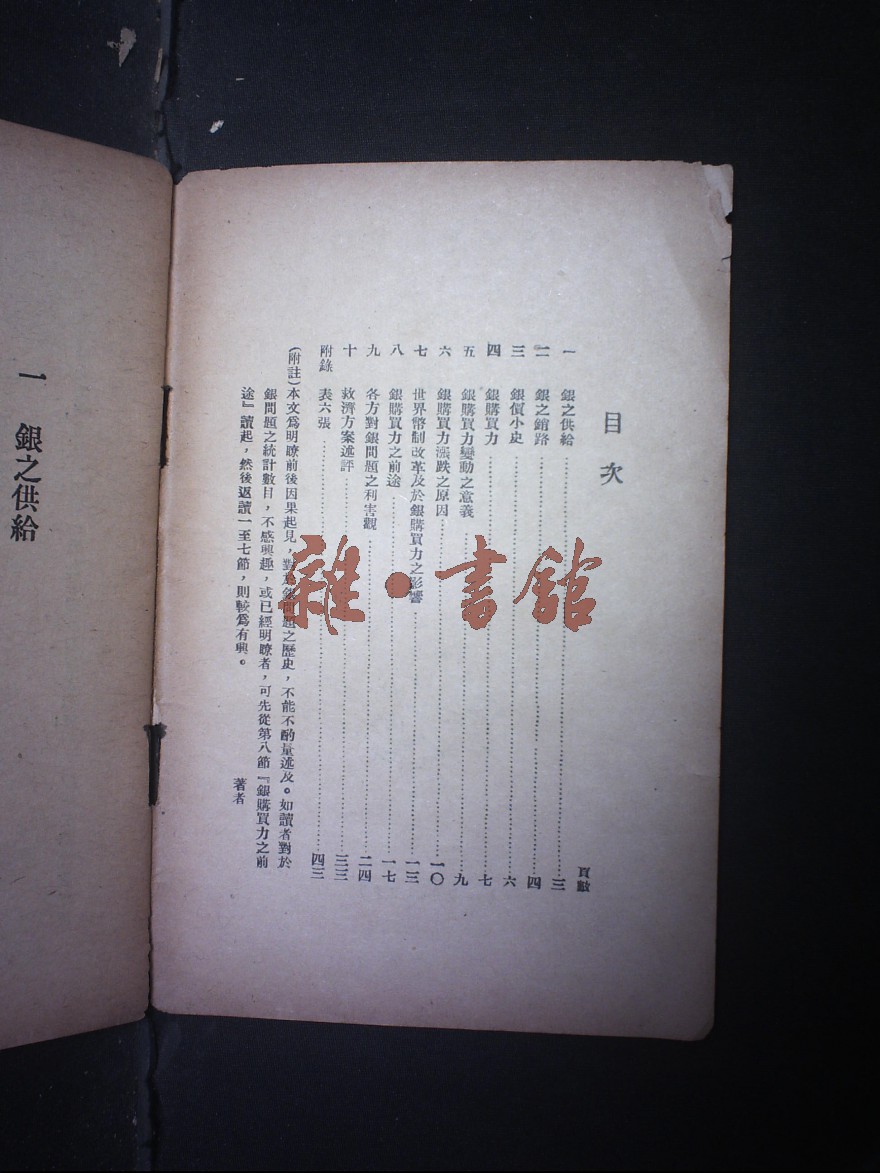 目次
頁數
一 銀之供給……三
二 銀之銷路……四
三 銀價小史……六
四 銀購買力……七
五 銀購買力變動之意義……九
六 銀購買力漲跌之原因……一〇
七 世界幣制改革及於銀購買力之影響……一三
八 銀購買力之前途……一七
九 各方對銀問題之利害觀……二四
十 救濟方案述評……三三
附錄 表六張……四三
(附註)本文爲明瞭前後因果起見,對於銀問題之歷史,不能不酌量述及。如讀者對於
銀問題之統計數目,不感興趣,或已經明瞭者,可先從第八節『銀購買力之前
途』讀起,然後返讀一至七節,則較爲有興。
著者
一 銀之供給
雜·書館